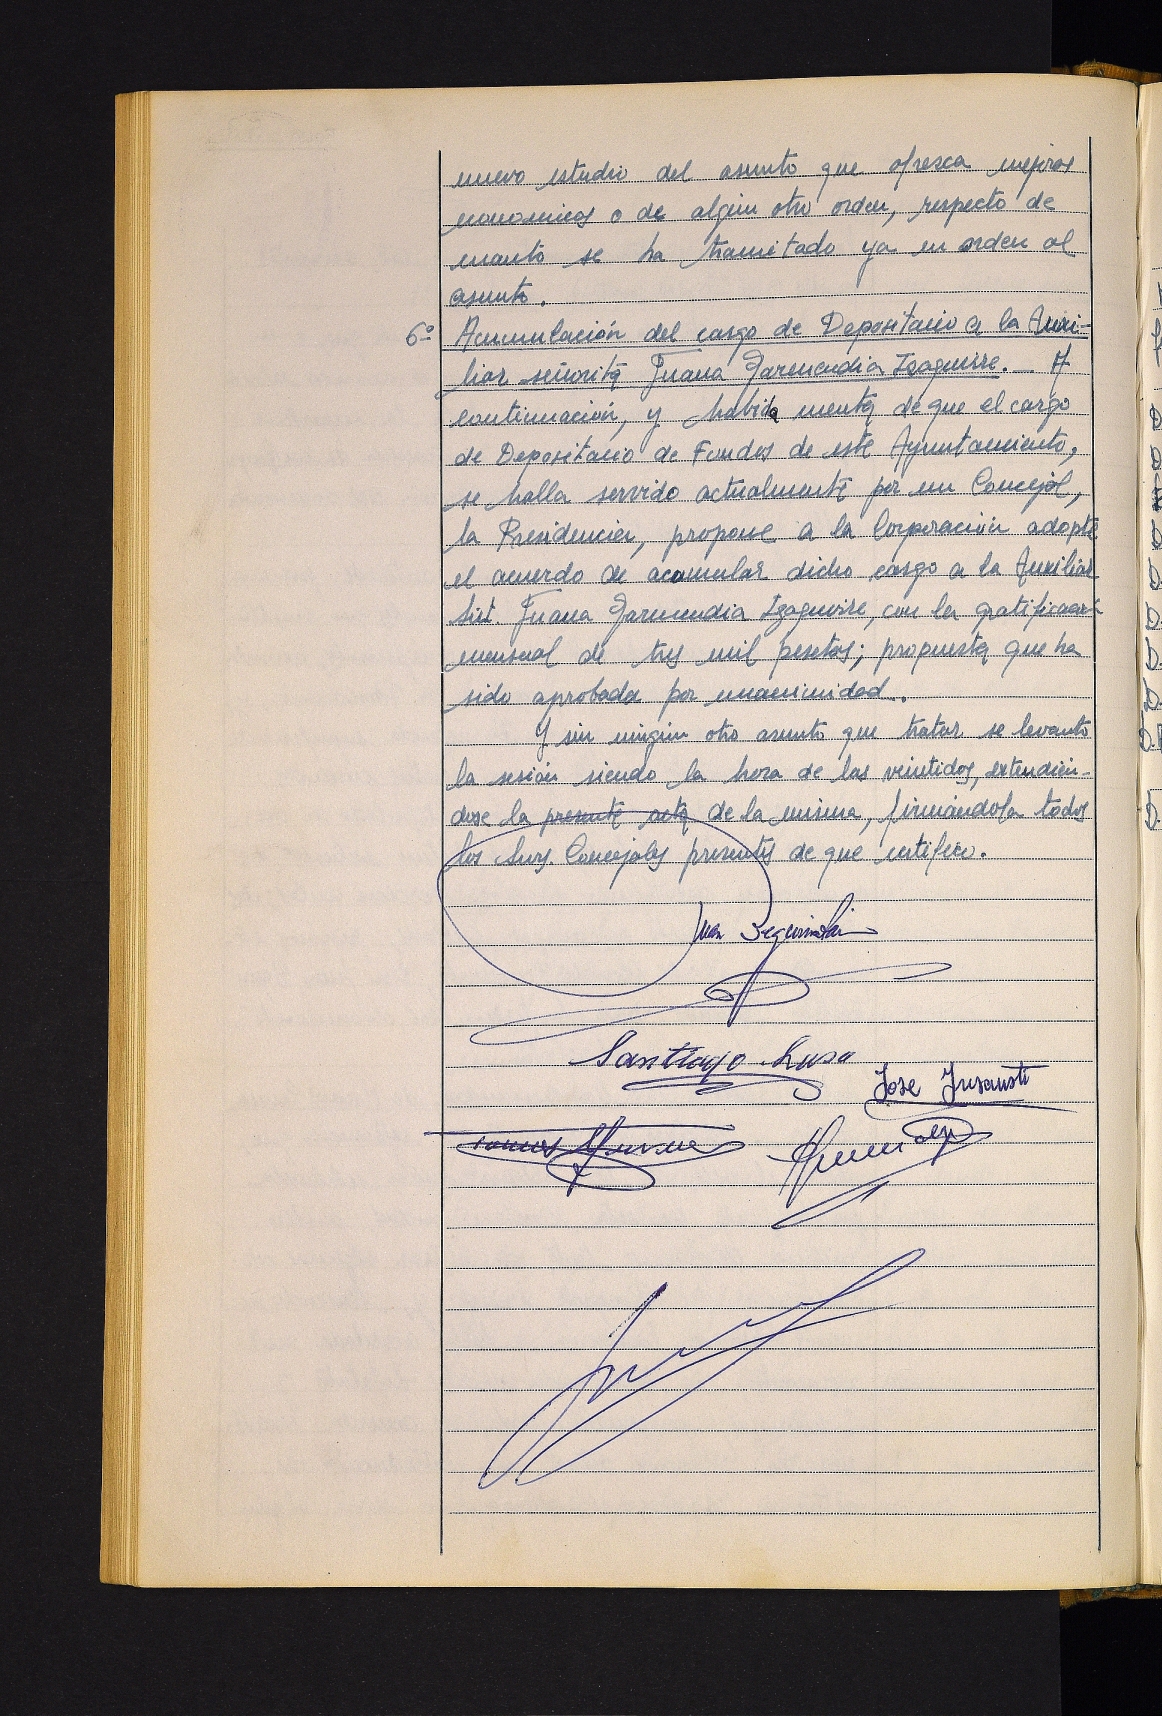 nuevo estudio del asunto que ofresca mejoras
economicas o de algún otro orden, respecto de
cuanto se ha tramitado ya en orden al
asunto.
6º Acumulación del cargo de Depositario a la Auxi-
liar señorita Juana Garmendia Izaguirre.- A
continuación, y habida cuenta de que el cargo
de Depositario de Fondos de este Ayuntamiento,
se halla servido actualmente por un Concejal,
la Presidencia, propone a la Corporación adopte
el acuerdo de acumular dicho cargo a la Auxiliar
Srt. Juana Garmendia Izaguirre, con la gratificación
mensual de tres mil pesetas; propuesta que ha
sido aprobada por unanimidad.
Y sin ningún otro asunto que tratar se levanto
la sesión siendo la hora de las veintidos, extendien-
dose la presente acta de la misma, firmándola todos
los Srs. Concejales presentes de que certifico.
Juan
Santiago Lusa
Jose Inсausti